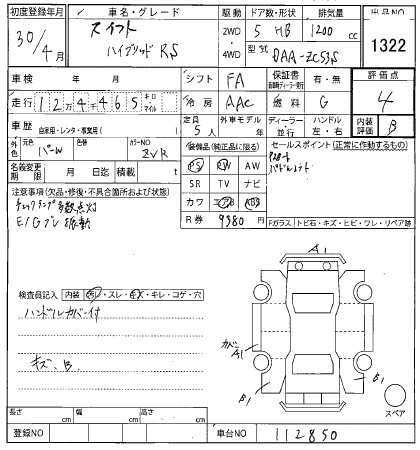 初度登録年月
車名・グレード
駆動
ドア数・形状
排気量
出品NO
30/4月
スイフト
ハイブリッドRS
2WD
4WD
5 HB
1200 cc
型式 DAA-ZC53S
1322
車検 年 月
シフト FA
保証書
有・無
評価点
4
走行 124465 キロ・マイル
冷房 AAC
燃料 G
車歴
自家用・レンタ・事業用( )
定員 5人
外車モデル 年
ディーラー 並行
ハンドル 左・右
内装評価 B
外色
元色 パール
色替
カラーNO ZVR
装備品(純正品に限る)
セールスポイント(正常に作動するもの)
名義変更期限 月 日迄
積載 t
PS PW AW
SR TV ナビ
カワ エアB ABS
R券 9380円
パドルシフト
注意事項(欠品・修復・不具合箇所および状態)
チェックランプ多数点灯
E/Gブレ振動
Fガラス トビ石・キズ・ヒビ・ワレ・リペア跡
検査員記入
内装 汚レ・スレ・キズ・キレ・コゲ・穴
ハンドルカバー付
キズ、B
A1
カバーA1
B1
B1
スペア
長さ cm
幅 cm
高さ cm
登録NO
車台NO 112850